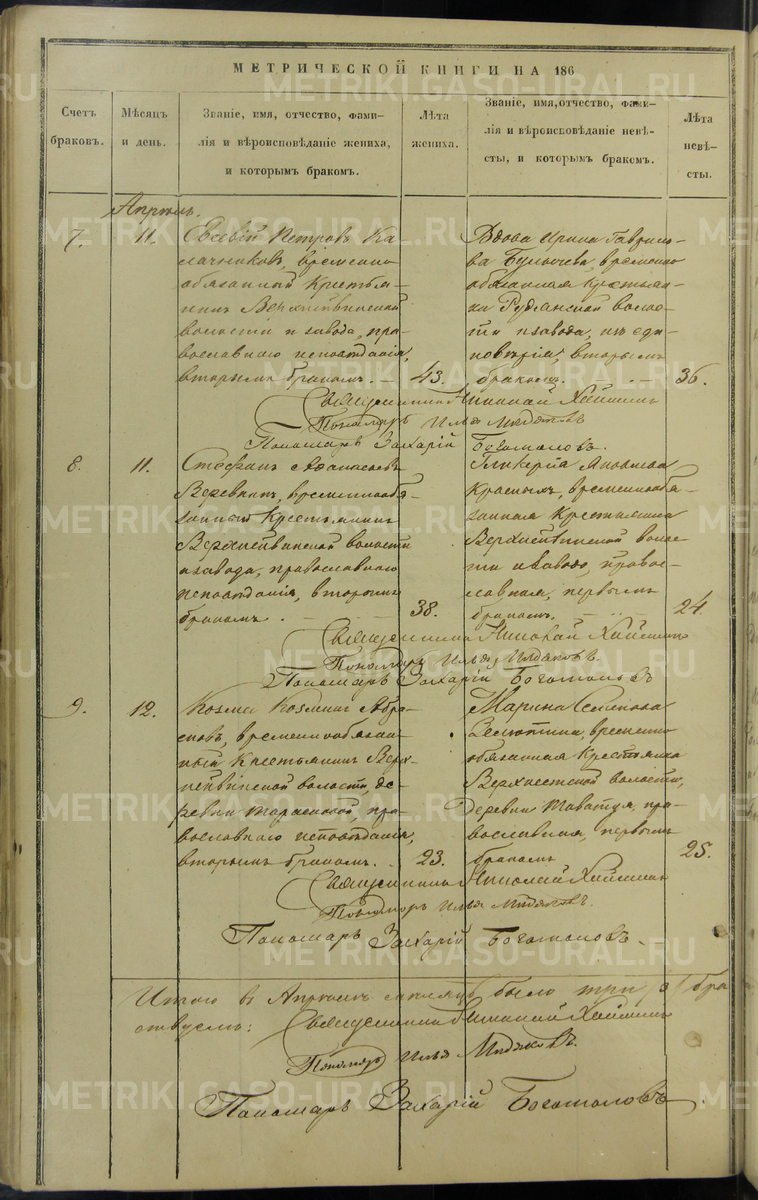 МЕТРИЧЕСКОЙ КНИГИ НА 186
Счетъ браковъ.
Мѣсяцъ и день.
Званіе, имя, отчество, фами-
лія и вѣроисповѣданіе жениха,
и которымъ бракомъ.
Лѣта жениха.
Званіе, имя, отчество, фами-
лія и вѣроисповѣданіе невѣ-
сты, и которымъ бракомъ.
Лѣта невѣ-
сты.
Апрель.
7.
11.
Евсевій Петровъ Ка-
лачниковъ, временно
обязанный Крестья-
нинъ Верхнейвинской
волости и завода, пра-
вославнаго исповѣданія,
вторымъ бракомъ.
43.
Вдова Ирина Гаврило-
ва Булычева, временно
обязанная Крестьян-
ка Рудянской воло-
сти и завода, изъ еди-
новѣрія, вторымъ
бракомъ.
36.
Священникъ Николай
Пономарь Илья
Пономарь Захарій Богомоловъ.
8.
11.
Стефанъ Афанасьевъ
Веревкинъ, временнообя-
занный Крестьянинъ
Верхнейвинской волости
и завода, православнаго
исповѣданія, вторымъ
бракомъ.
38.
Гликерія
временнообя-
занная Крестьянка
Верхнейвинской воло-
сти и завода, правос-
лавная, первымъ
бракомъ.
24.
Священникъ Николай
Пономарь Илья
Пономарь Захарій Богомоловъ
9.
12.
Козма Козминъ Абра-
мовъ, временнообязан-
ный Крестьянинъ Верх-
нейвинской волости, де-
ревни Тарасковой, пра-
вославнаго исповѣданія,
вторымъ бракомъ.
23.
Марина Семенова
временно
обязанная Крестьянка
Верхисетской волости,
деревни Таватуя, пра-
вославная, первымъ
бракомъ
25.
Священникъ Николай
Пономарь Илья
Пономарь Захарій Богомоловъ.
Итого въ Апрелѣ месяцѣ было три 3 бра
Священникъ Николай
Пономарь Илья
Пономарь Захарій Богомоловъ
METRIKI.GASO-URAL.RU